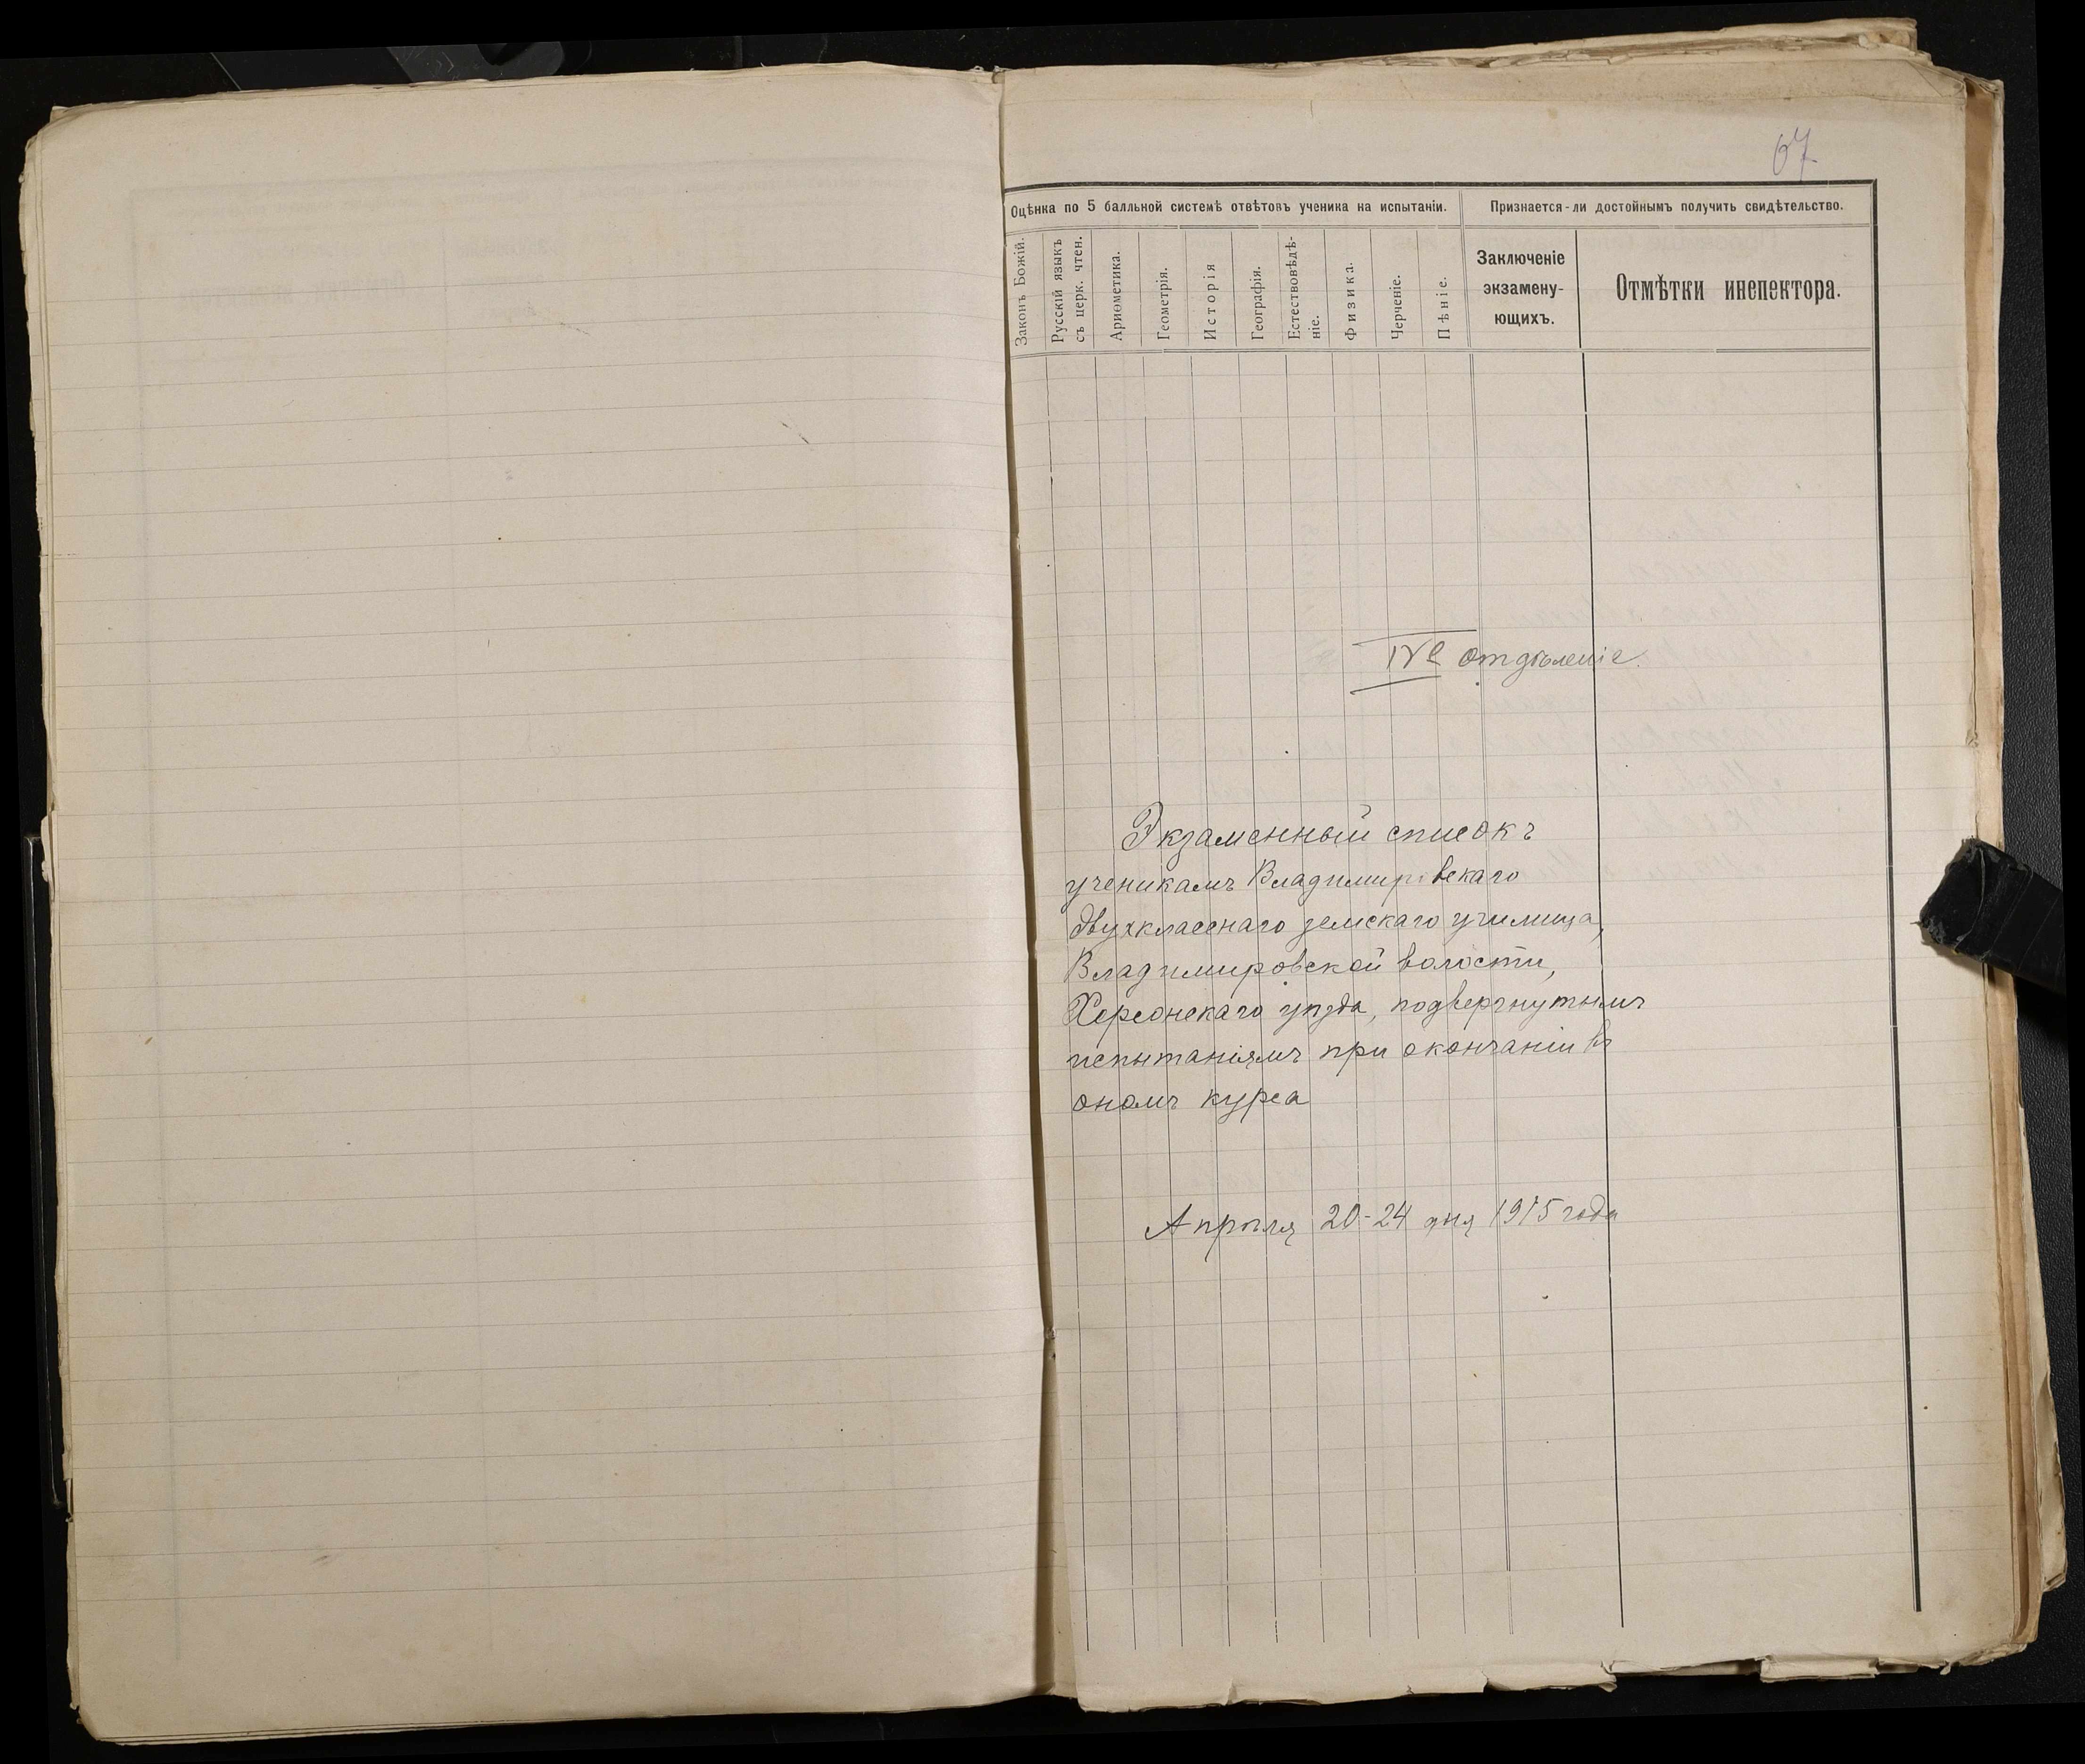 67
Оцѣнка по 5 балльной системѣ отвѣтовъ ученика на испытаніи.
Признается-ли достойнымъ получить свидѣтельство.
Законъ Божій.
Русскій языкъ
съ церк. чтен.
Ариѳметика.
Геометрія.
Исторія
Географія.
Естествовѣдѣ-
ніе.
Физика.
Черченіе.
Пѣніе.
Заключеніе
экзамену-
ющихъ.
Отмѣтки инспектора.
IVе отдѣленіе.
Экзаменный списокъ
ученикамъ Владимировскаго
двухкласснаго земскаго училища,
Владимировской волости,
Херсонскаго уѣзда, подвергнутымъ
испытаніямъ при окончаніи въ
ономъ курса
Апрѣля 20-24 дня 1915 года